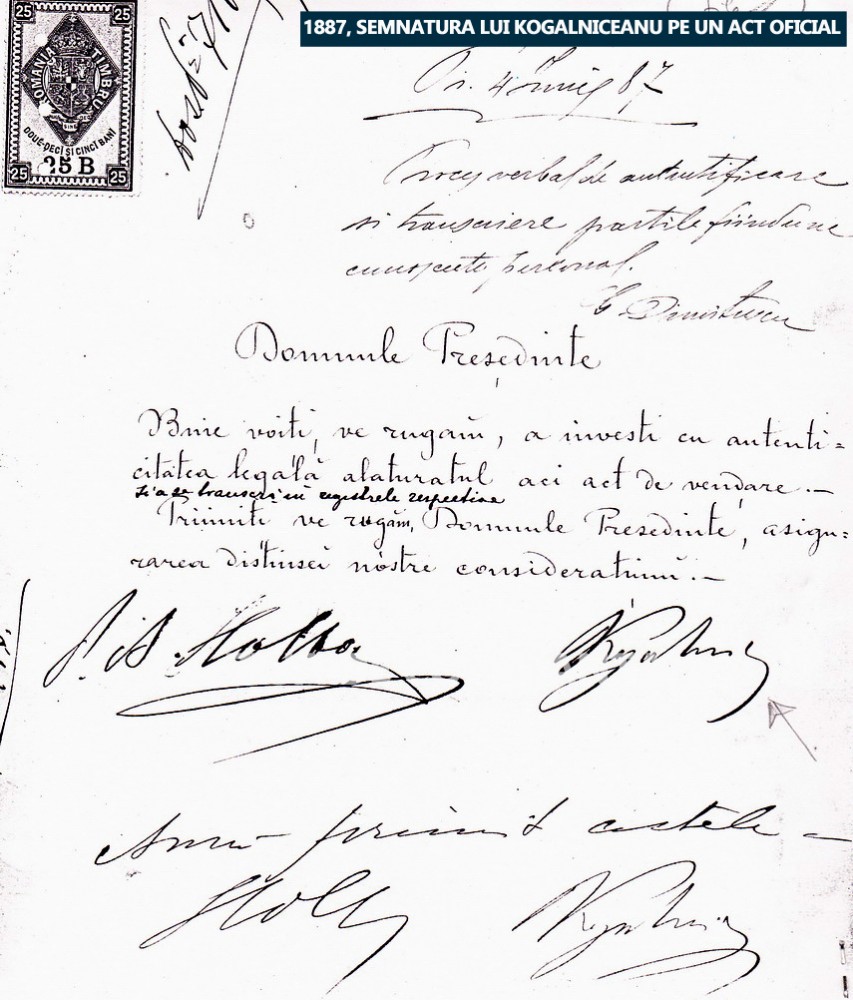 1887, SEMNATURA LUI KOGALNICEANU PE UN ACT OFICIAL
25 25
ROMANIA TIMBRU
DOUE-DECI SI CINCI BANI
25 B
25 25
4 Iunie 87
Proces verbal de autentificare
si transcriere partile fiindune
cunoscute personal.
C. Dimitrescu
Domnule Președinte
Bine voiti, ve rugam, a investi cu autenti=
citatea legală alaturatul aci act de vendare.—
si a se transcri in registrele respective
Priimiti ve rugăm, Domnule Presedinte, asigu=
rarea distinsei nóstre consideratiuni.—
Holban
Amu primit actele